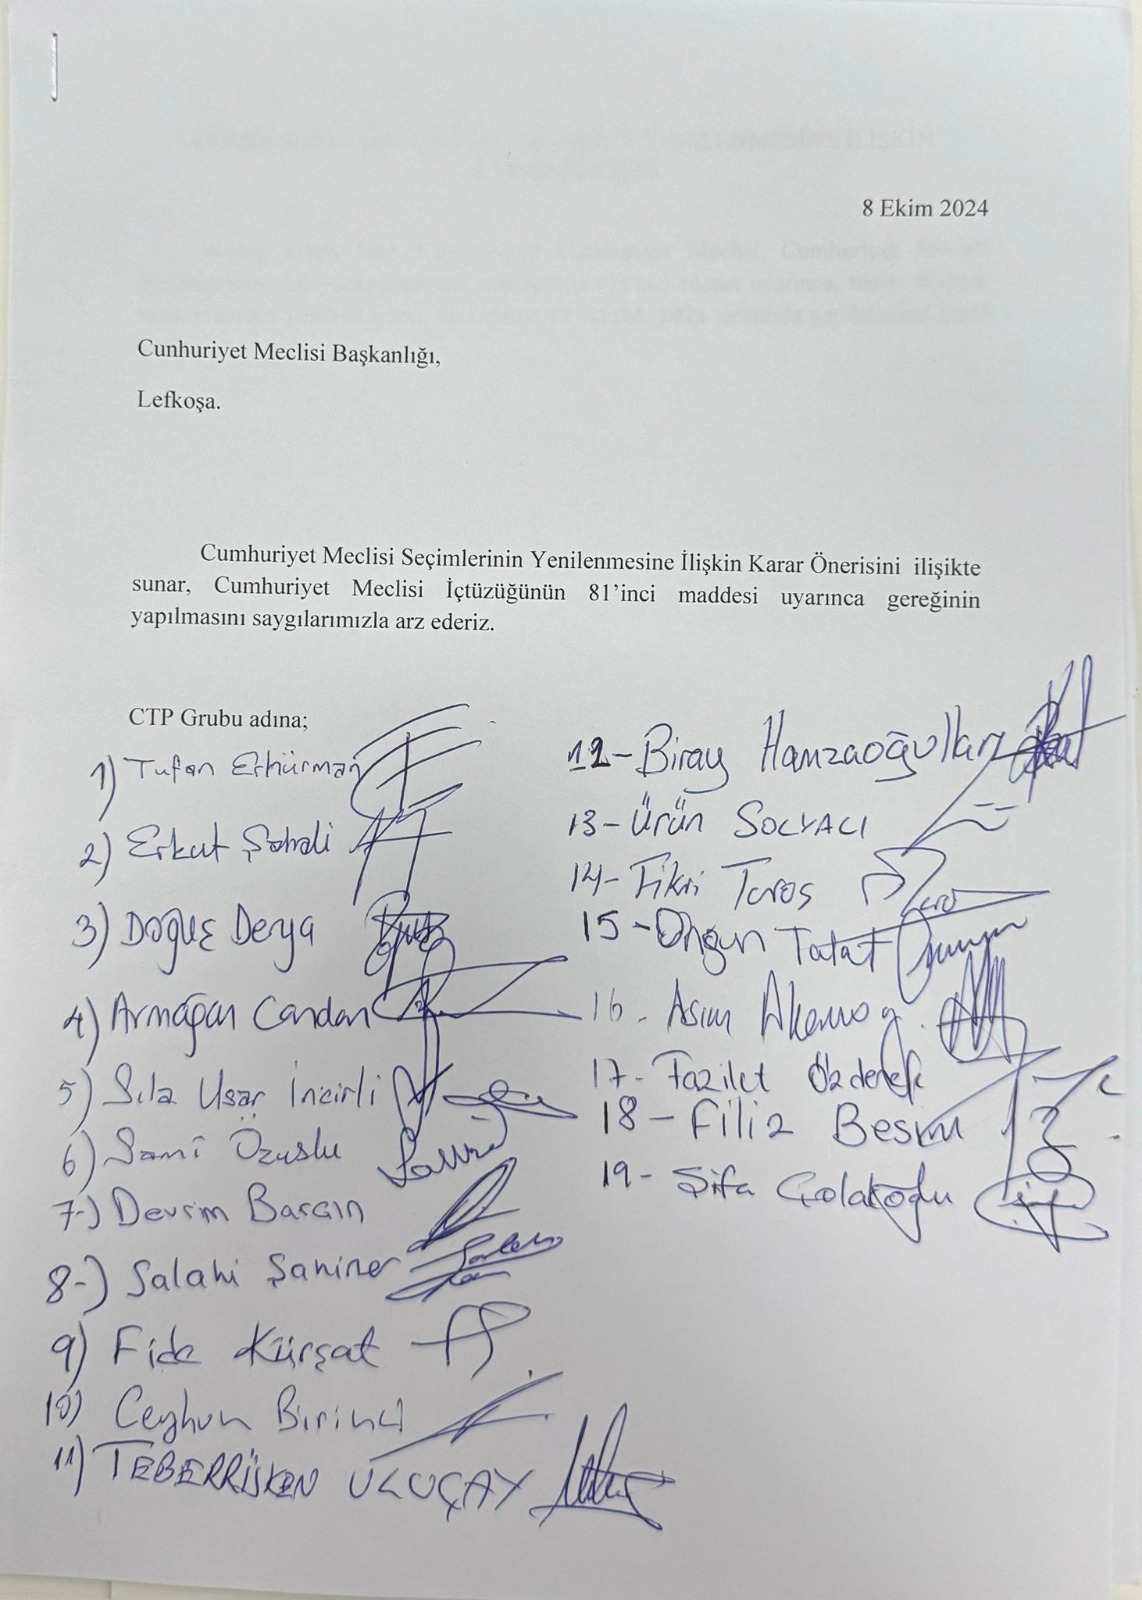 8 Ekim 2024
Cunhuriyet Meclisi Başkanlığı,
Lefkoşa.
Cumhuriyet Meclisi Seçimlerinin Yenilenmesine İlişkin Karar Önerisini ilişikte
sunar, Cumhuriyet Meclisi İçtüzüğünün 81’inci maddesi uyarınca gereğinin
yapılmasını saygılarımızla arz ederiz.
CTP Grubu adına;
1) Tufan Erhürman
2) Erkut Şahali
3) Doğuş Derya
4) Armağan Candan
5) Sıla Usar İncirli
6) Sami Özuslu
7-) Devrim Barçın
8-) Salahi Şahiner
9) Fide Kürşat
10) Ceyhun Birinci
11) TEBERRÜKEN ULUÇAY
12- Biray Hamzaoğulları
13- Ürün SOLYALI
14- Fikri Toros
15- Ongun Talat
16- Asım Akansoy
17- Fazilet Özdenefe
18- Filiz Besim
19- Şifa Çolakoğlu